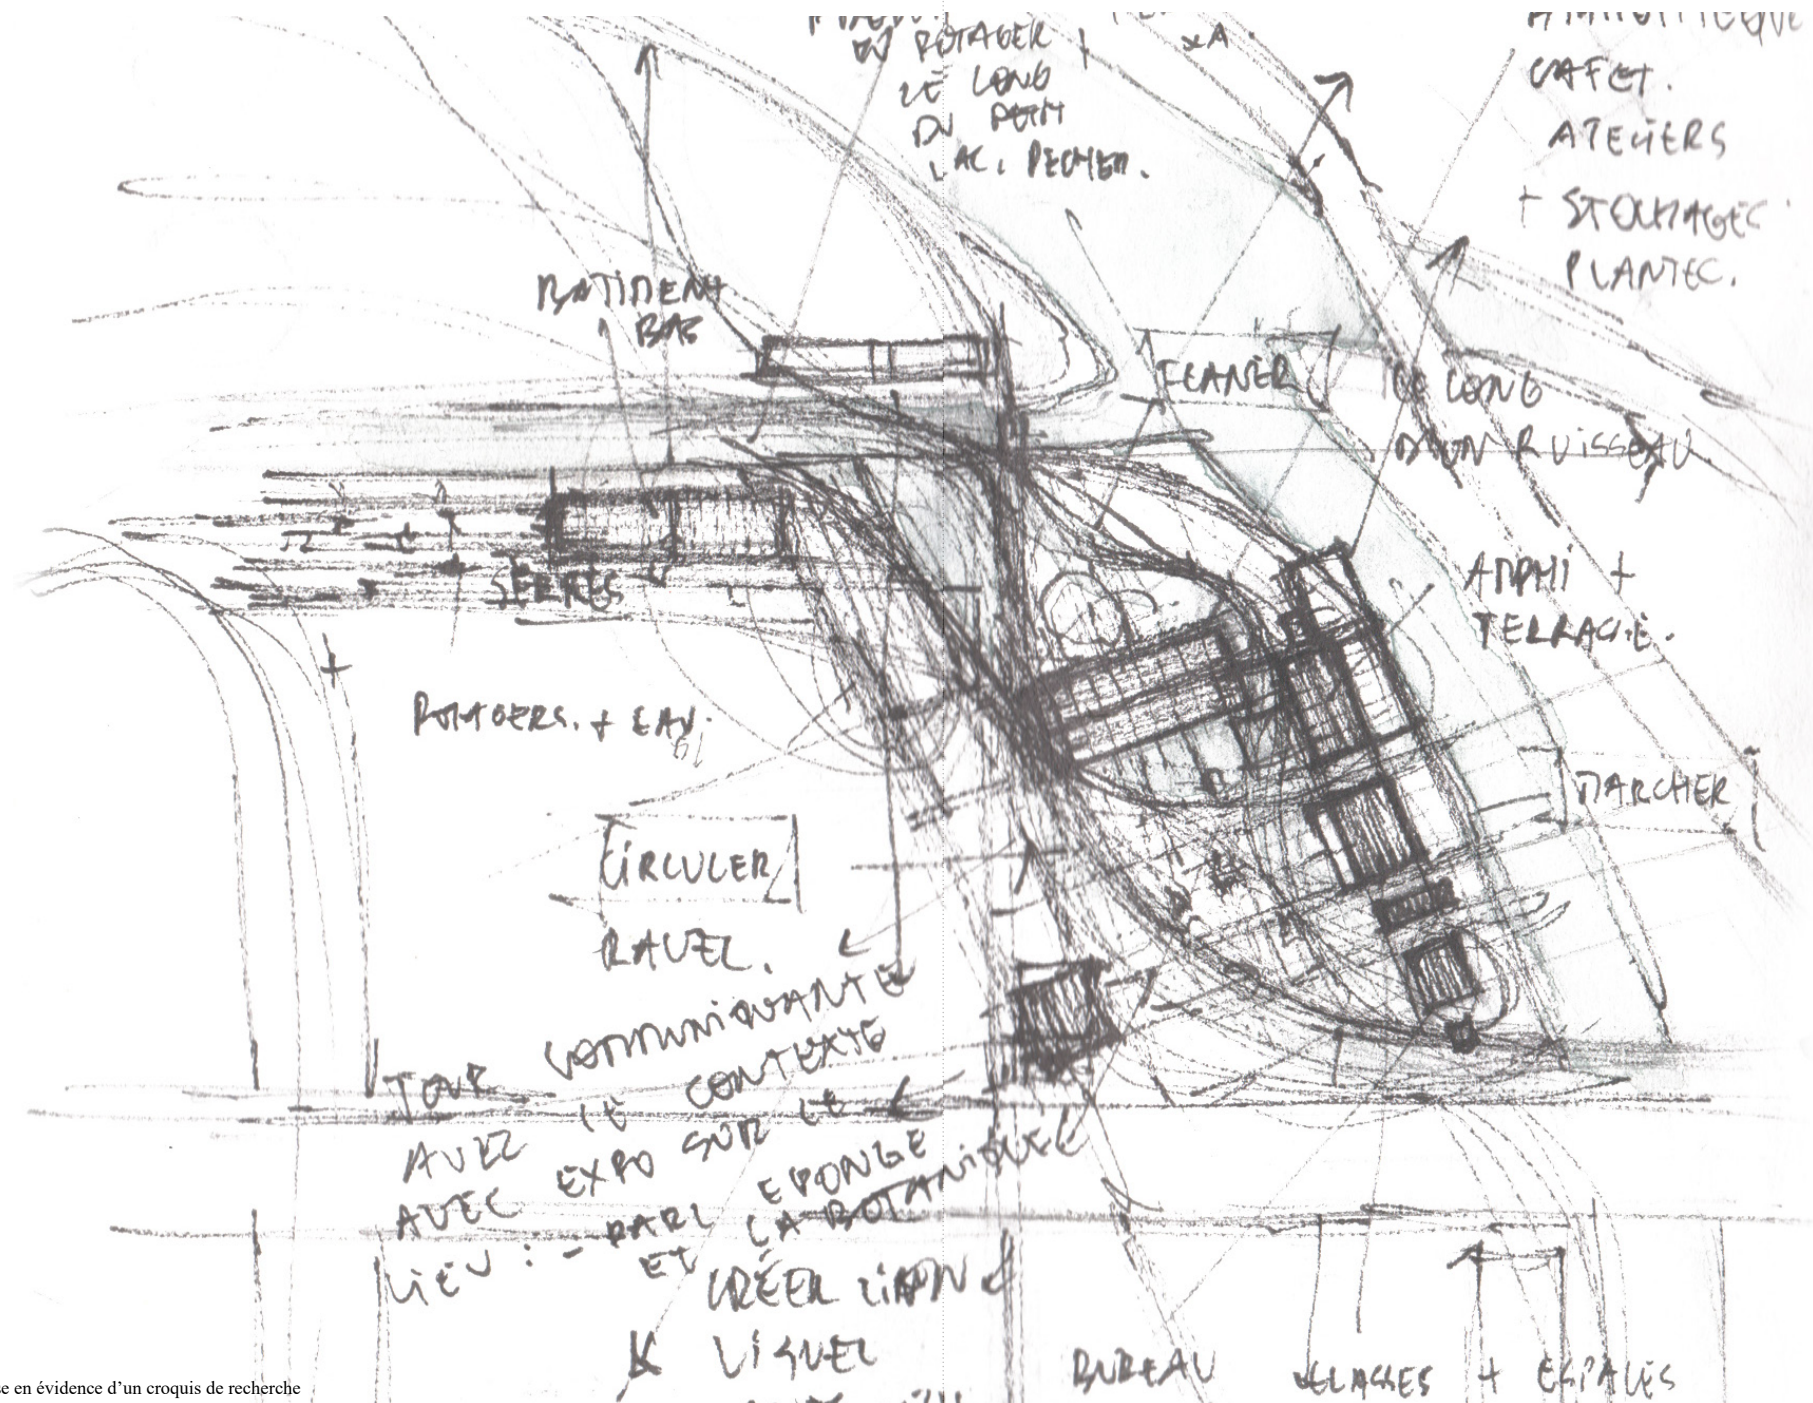 DU POTAGER
LE LONG
DU PETIT
LAC. PECHER.
CAFET.
ATELIERS
+ STOCKAGES
PLANTEC.
BATIMENT
BAS
FLANER
LE LONG
D'UN RUISSEAU
SERRES
AMPHI +
TERRASSE.
POTAGERS. + EAU.
MARCHER
CIRCULER
RAVEL.
TOUR COMMUNIQUANTE
AVEC LE CONTEXTE
AVEC EXPO SUR LE
LIEU : - PARC EPONGE
ET LA BOTANIQUE
CRÉER LIAISON
VISUEL
BUREAU
CLASSES + ESPACES
se en évidence d'un croquis de recherche